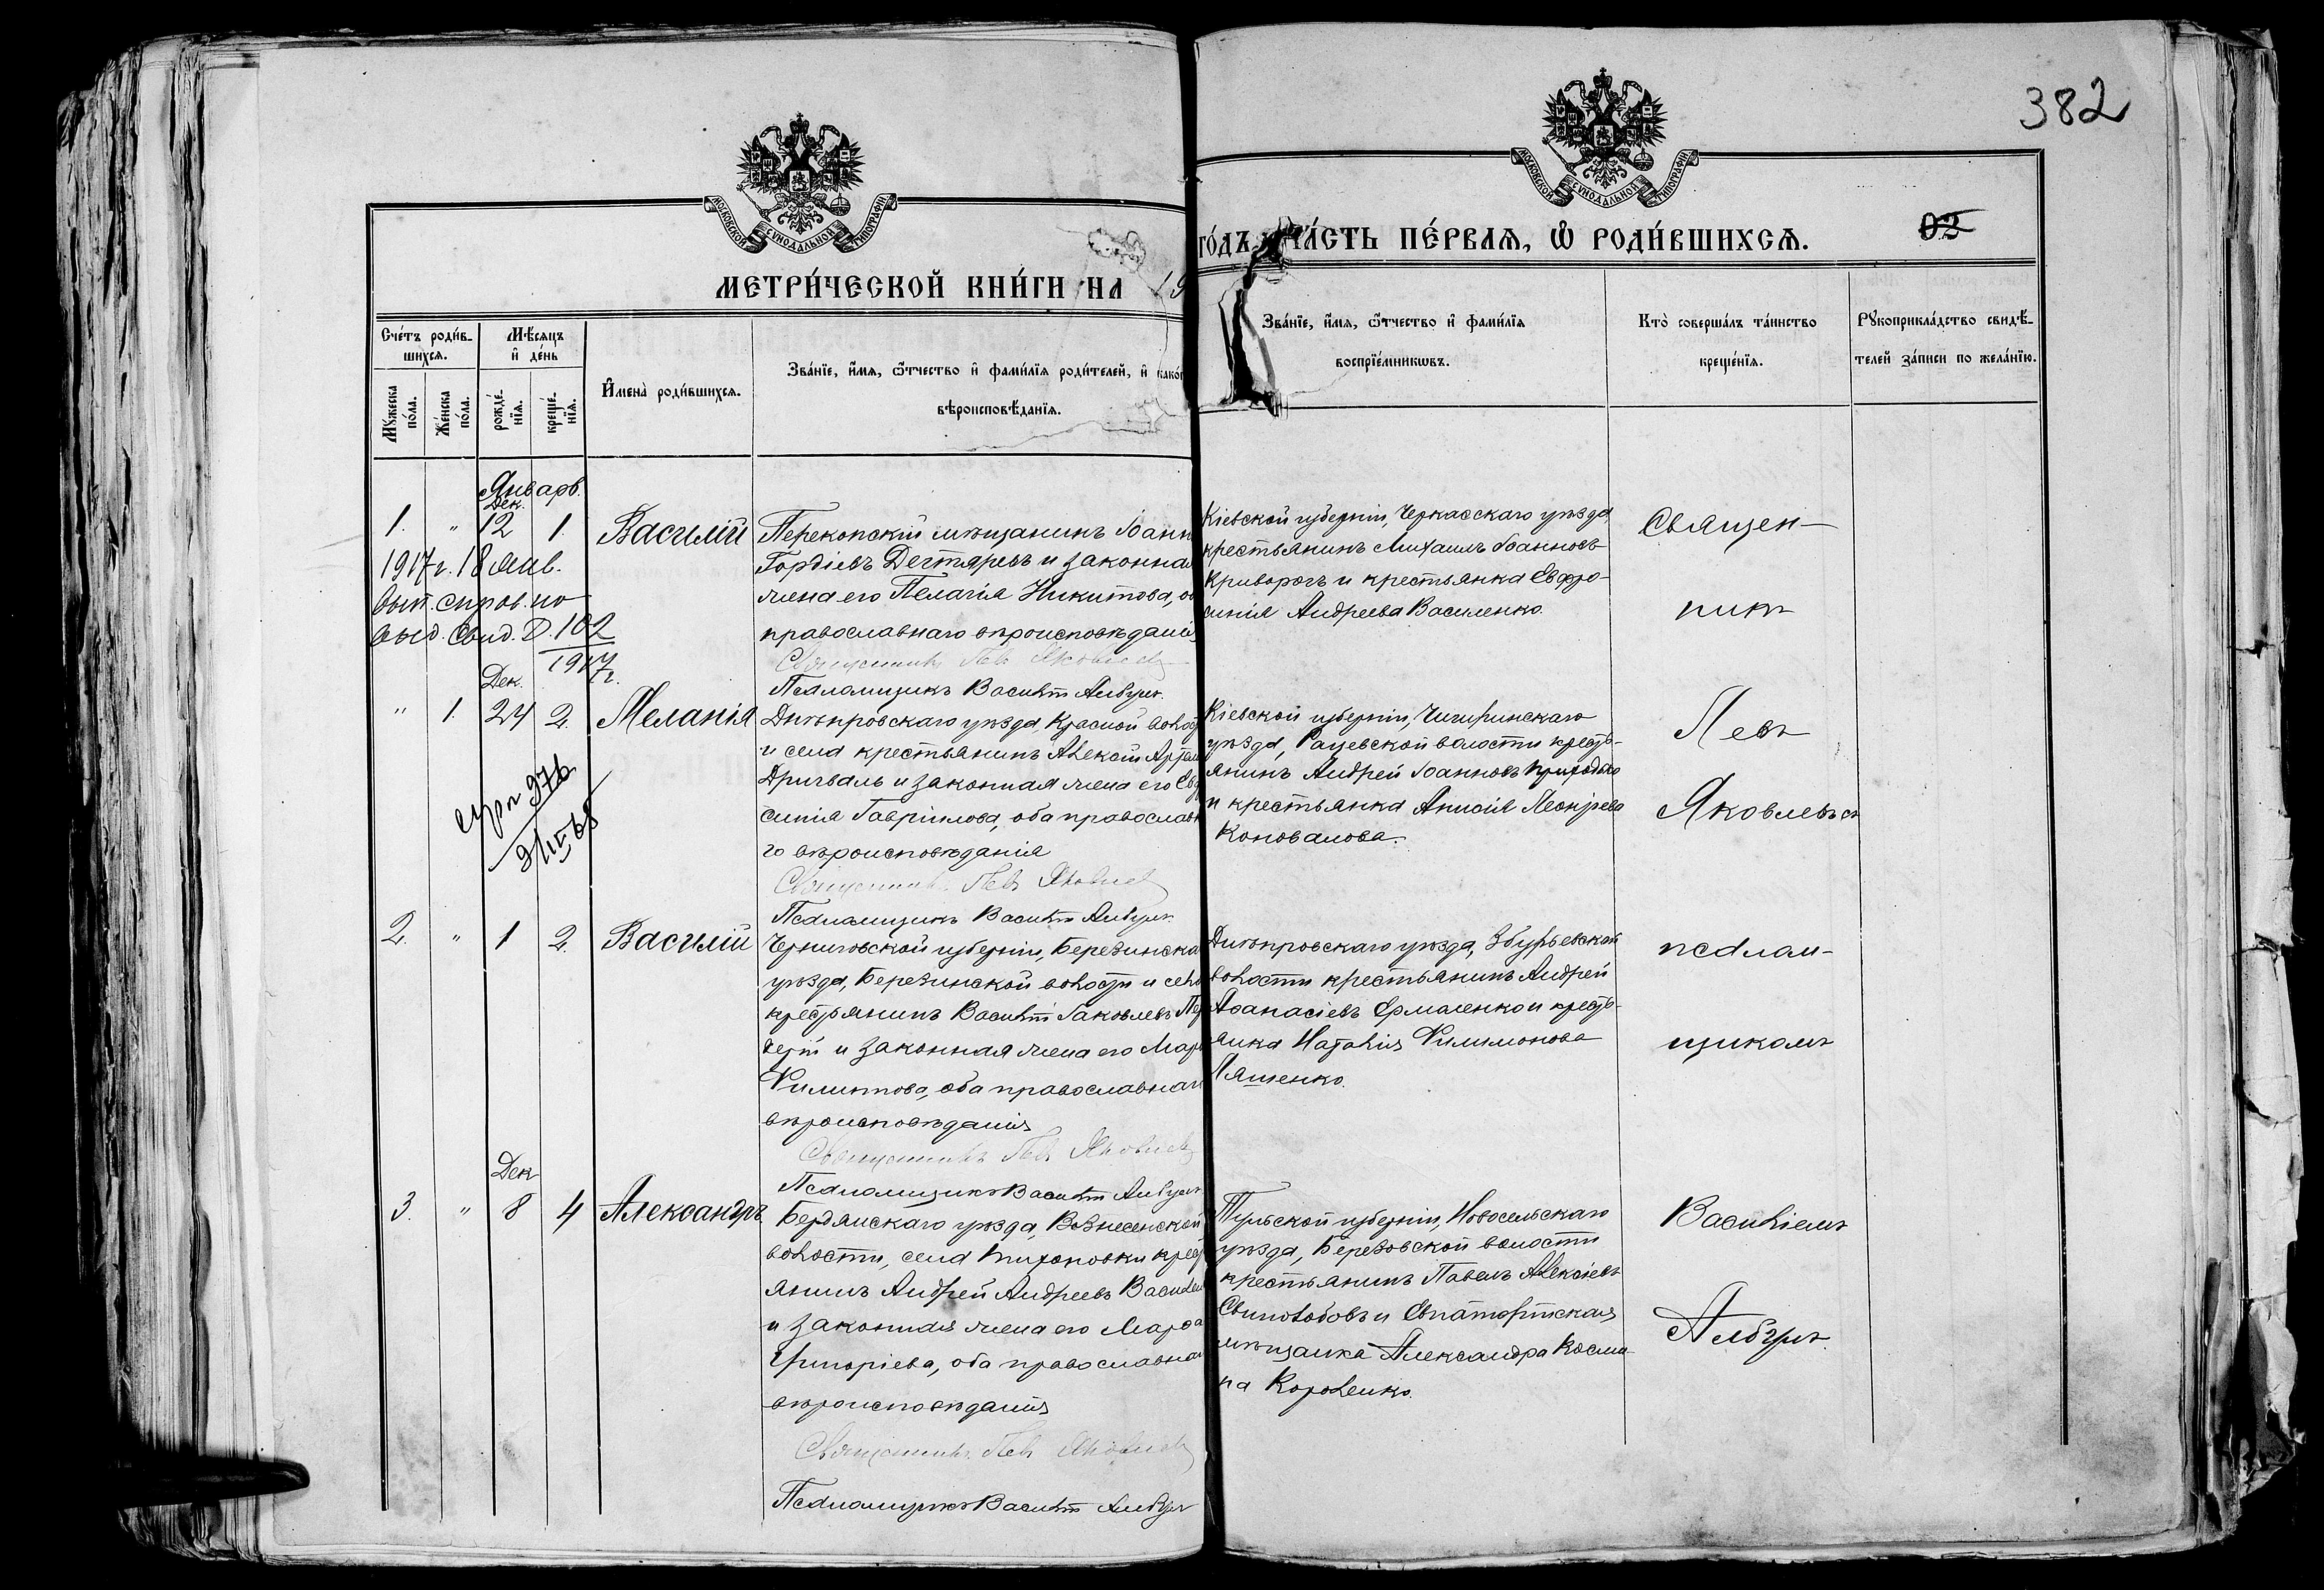 382
МОСКОВСКОЙ СѴНОДАЛЬНОЙ ТИПОГРАФІИ
МОСКОВСКОЙ СѴНОДАЛЬНОЙ ТИПОГРАФІИ
МЕТРИ́ЧЕСКОЙ КНИ́ГИ НА 19
ГО́ДЪ ЧА́СТЬ ПЕ́РВАѦ, Ѽ РОДИ́ВШИХСѦ.
02
Сче́тъ роди́в-
шихсѧ.
Мѣ́сѧцъ
и҆ де́нь
Мꙋ́жеска
по́ла.
Же́нска
по́ла.
рожде́-
нїѧ.
креще́-
нїѧ.
И҆мена̀ роди́вшихсѧ.
Зва́нїе, и҆́мѧ, ѻ҆́тчество и҆ фами́лїѧ роди́телей, и҆ како́г
вѣроисповѣ́данїѧ.
Зва́нїе, и҆́мѧ, ѻ҆́тчество и҆ фами́лїѧ
воспрїе́мникѡвъ.
Кто̀ соверша́лъ та́инство
креще́нїѧ.
Рꙋкоприкла́дство свидѣ́-
телей за́писи по жела́нїю.
Январь.
Дек.
1. " 12 1. Василій
1917 г. 18 янв.
вып. справ. по
выд. свид. 102
1917 г.
Перекопскій мѣщанинъ Іоанн
Гордіевъ Дегтяревъ и законная
жена его Пелагія Никитова, об
православнаго вѣроисповѣданія
Священникъ Левъ Яковлевъ
Псаломщикъ Василій Албулъ.
Кіевской губерніи, Черкасскаго уѣзда,
крестьянинъ Михаилъ Іоанновъ
Криворогъ и крестьянка Евфро-
синія Андреева Василенко.
Дек.
" 1. 24 2. Меланія
976
Днѣпровскаго уѣзда, Красной волост
и села крестьянинъ Алексій Артем
Дригваль и законная жена его Евф
синія Гавріилова, оба православна
го вѣроисповѣданія
Священникъ Левъ Яковлевъ
Псаломщикъ Василій Албулъ.
Кіевской губерніи, Чигиринскаго
уѣзда, Рацевской волости кресть-
янинъ Андрей Іоанновъ Приходько
и крестьянка Анисія Леонтьева
Коновалова.
2. " 1 2. Василій
Черниговской губерніи, Березинска
уѣзда, Березинской волости и села
крестьянинъ Василій Іаковлевъ
и законная жена его Мар
Филиппова, оба православнаго
вѣроисповѣданія
Священникъ Левъ Яковлевъ
Псаломщикъ Василій Албулъ
Днѣпровскаго уѣзда, Збурьевской
волости крестьянинъ Андрей
Аѳанасіевъ Ермоленко и кресть-
янка Наталія Филимонова
Ляшенко.
Дек
3. " 8 4 Александръ
Бердянскаго уѣзда, Вознесенской
волости, села Тихоновки крест
янинъ Андрей Андреевъ Василен
и законная жена его Марѳа
Григоріева, оба православнаг
вѣроисповѣданія
Священникъ Левъ Яковлевъ
Псаломщикъ Василій Албулъ
Тульской губерніи, Новосельскаго
уѣзда, Березовской волости
крестьянинъ Павелъ Алексіевъ
Свинолобовъ и Евпаторійская
мѣщанка Александра Косми-
на Короленко.
Священ-
никъ
Левъ
Яковлевъ съ
псалом-
щикомъ
Василіемъ
Албулъ.